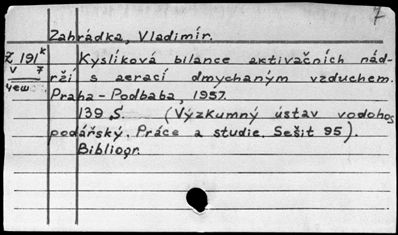 7
Zahrádka, Vladimír.
Z 191 k
v 7
Kyslíková bilance aktivačních nád-
rží s aerací dmychaným vzduchem.
Praha-Podbaba, 1957.
139 S. (Výzkumný ústav vodohos
podářský. Práce a studie. Sešit 95).
Bibliogr.